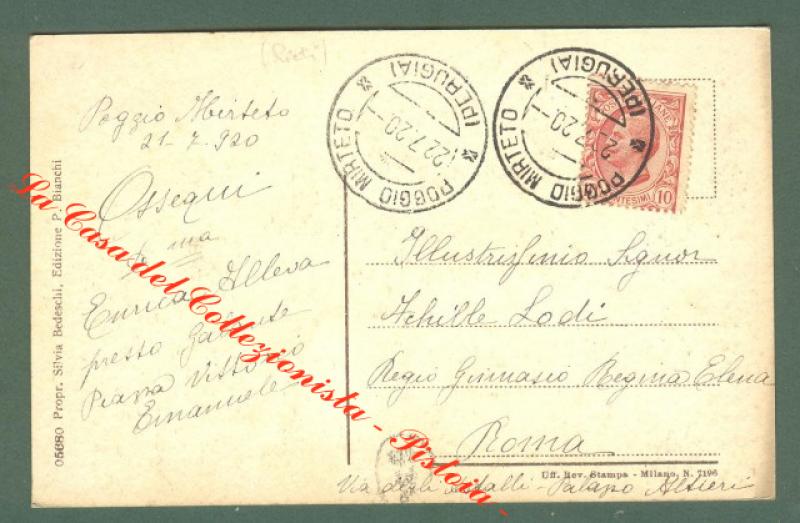 (Rieti)
Poggio Mirteto
21-7-920
Ossequi
ma
Enrica Alleva
presso Galante
Piazza Vittorio
Emanuele
05680 Propr. Silvia Bedeschi, Edizione P. Bianchi
POGGIO MIRTETO * (PERUGIA) *
22.7.20
POGGIO MIRTETO * (PERUGIA) *
2 .7.20
10
Illustrissimo Signor
Achille Lodi
Regio Ginnasio Regina Elena
Roma
Uff. Rev. Stampa - Milano, N. 7196
Via degli Astalli - Palazzo Altieri
La Casa del Collezionista - Pistoia -